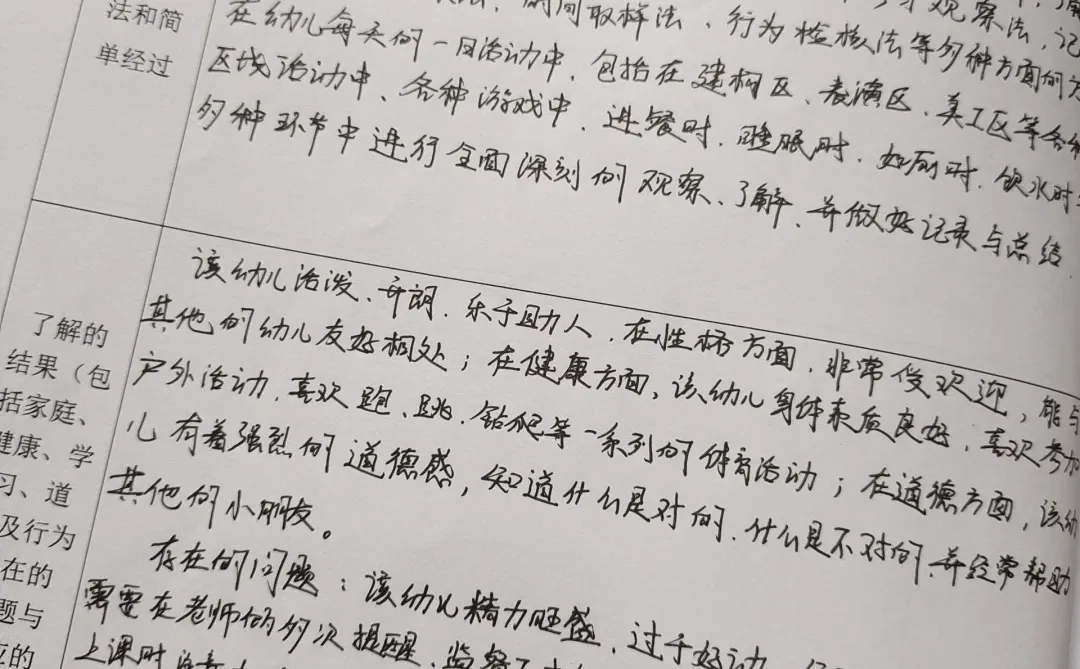 法和简
单经过
法、时间取样法、行为检核法等多种方面的方
在幼儿每天的一日活动中，包括在建构区、表演区、美工区等各种
区域活动中、各种游戏中、进餐时、睡眠时、如厕时、饮水时
多种环节中进行全面深刻的观察、了解、并做好记录与总结
了解的
结果（包
括家庭、
健康、学
习、道
及行为
在的
题与
应的
该幼儿活泼、开朗、乐于助人，在性格方面，非常受欢迎，能与
其他的幼儿友好相处；在健康方面，该幼儿身体素质良好，喜欢参加
户外活动，喜欢跑、跳、钻爬等一系列的体育活动；在道德方面，该幼
儿有着强烈的道德感，知道什么是对的，什么是不对的，并经常帮助
其他的小朋友。
存在的问题：该幼儿精力旺盛，过于好动
需要在老师的多次提醒、监督下
上课时注意